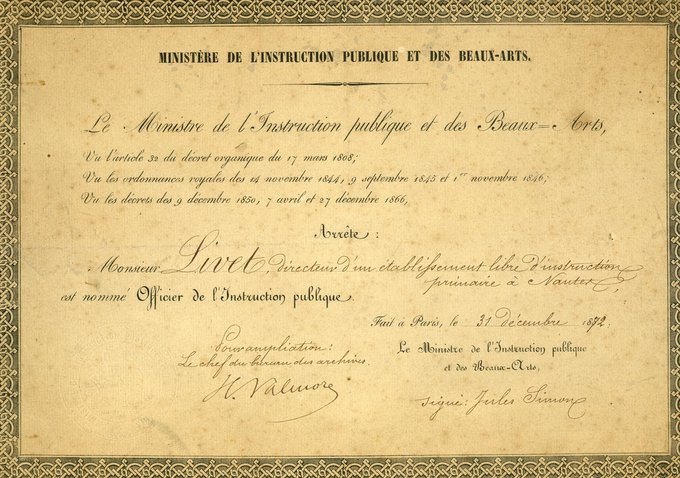 MINISTÈRE DE L'INSTRUCTION PUBLIQUE ET DES BEAUX-ARTS.
Le Ministre de l'Instruction publique et des Beaux=Arts,
Vu l'article 32 du décret organique du 17 mars 1808;
Vu les ordonnances royales des 14 novembre 1844, 9 septembre 1845 et 1er novembre 1846;
Vu les décrets des 9 décembre 1850, 7 avril et 27 décembre 1866,
Arrête :
Monsieur Livet, directeur d'un établissement libre d'instruction
primaire à Nantes,
est nommé Officier de l'Instruction publique.
Fait à Paris, le 31 décembre 1872.
Pour ampliation:
Le chef du bureau des archives.
H. Valmore
Le Ministre de l'Instruction publique
et des Beaux-Arts,
signé: Jules Simon